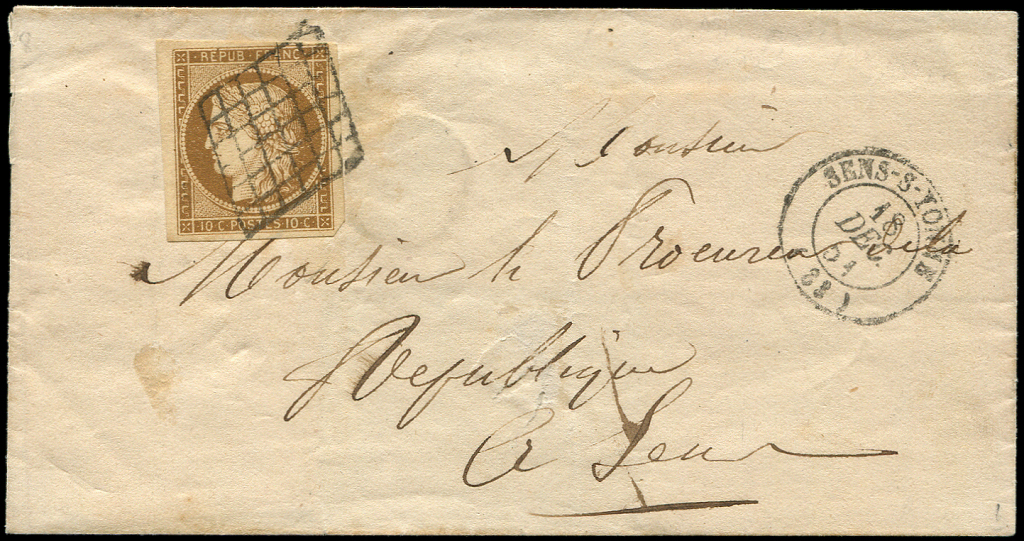 8
RÉPUB. FRANC.
10 C. POSTES 10 C.
Monsieur
Monsieur le Procureur de la
République
A Sens
SENS-S-YONNE
18
DEC.
51
(88)